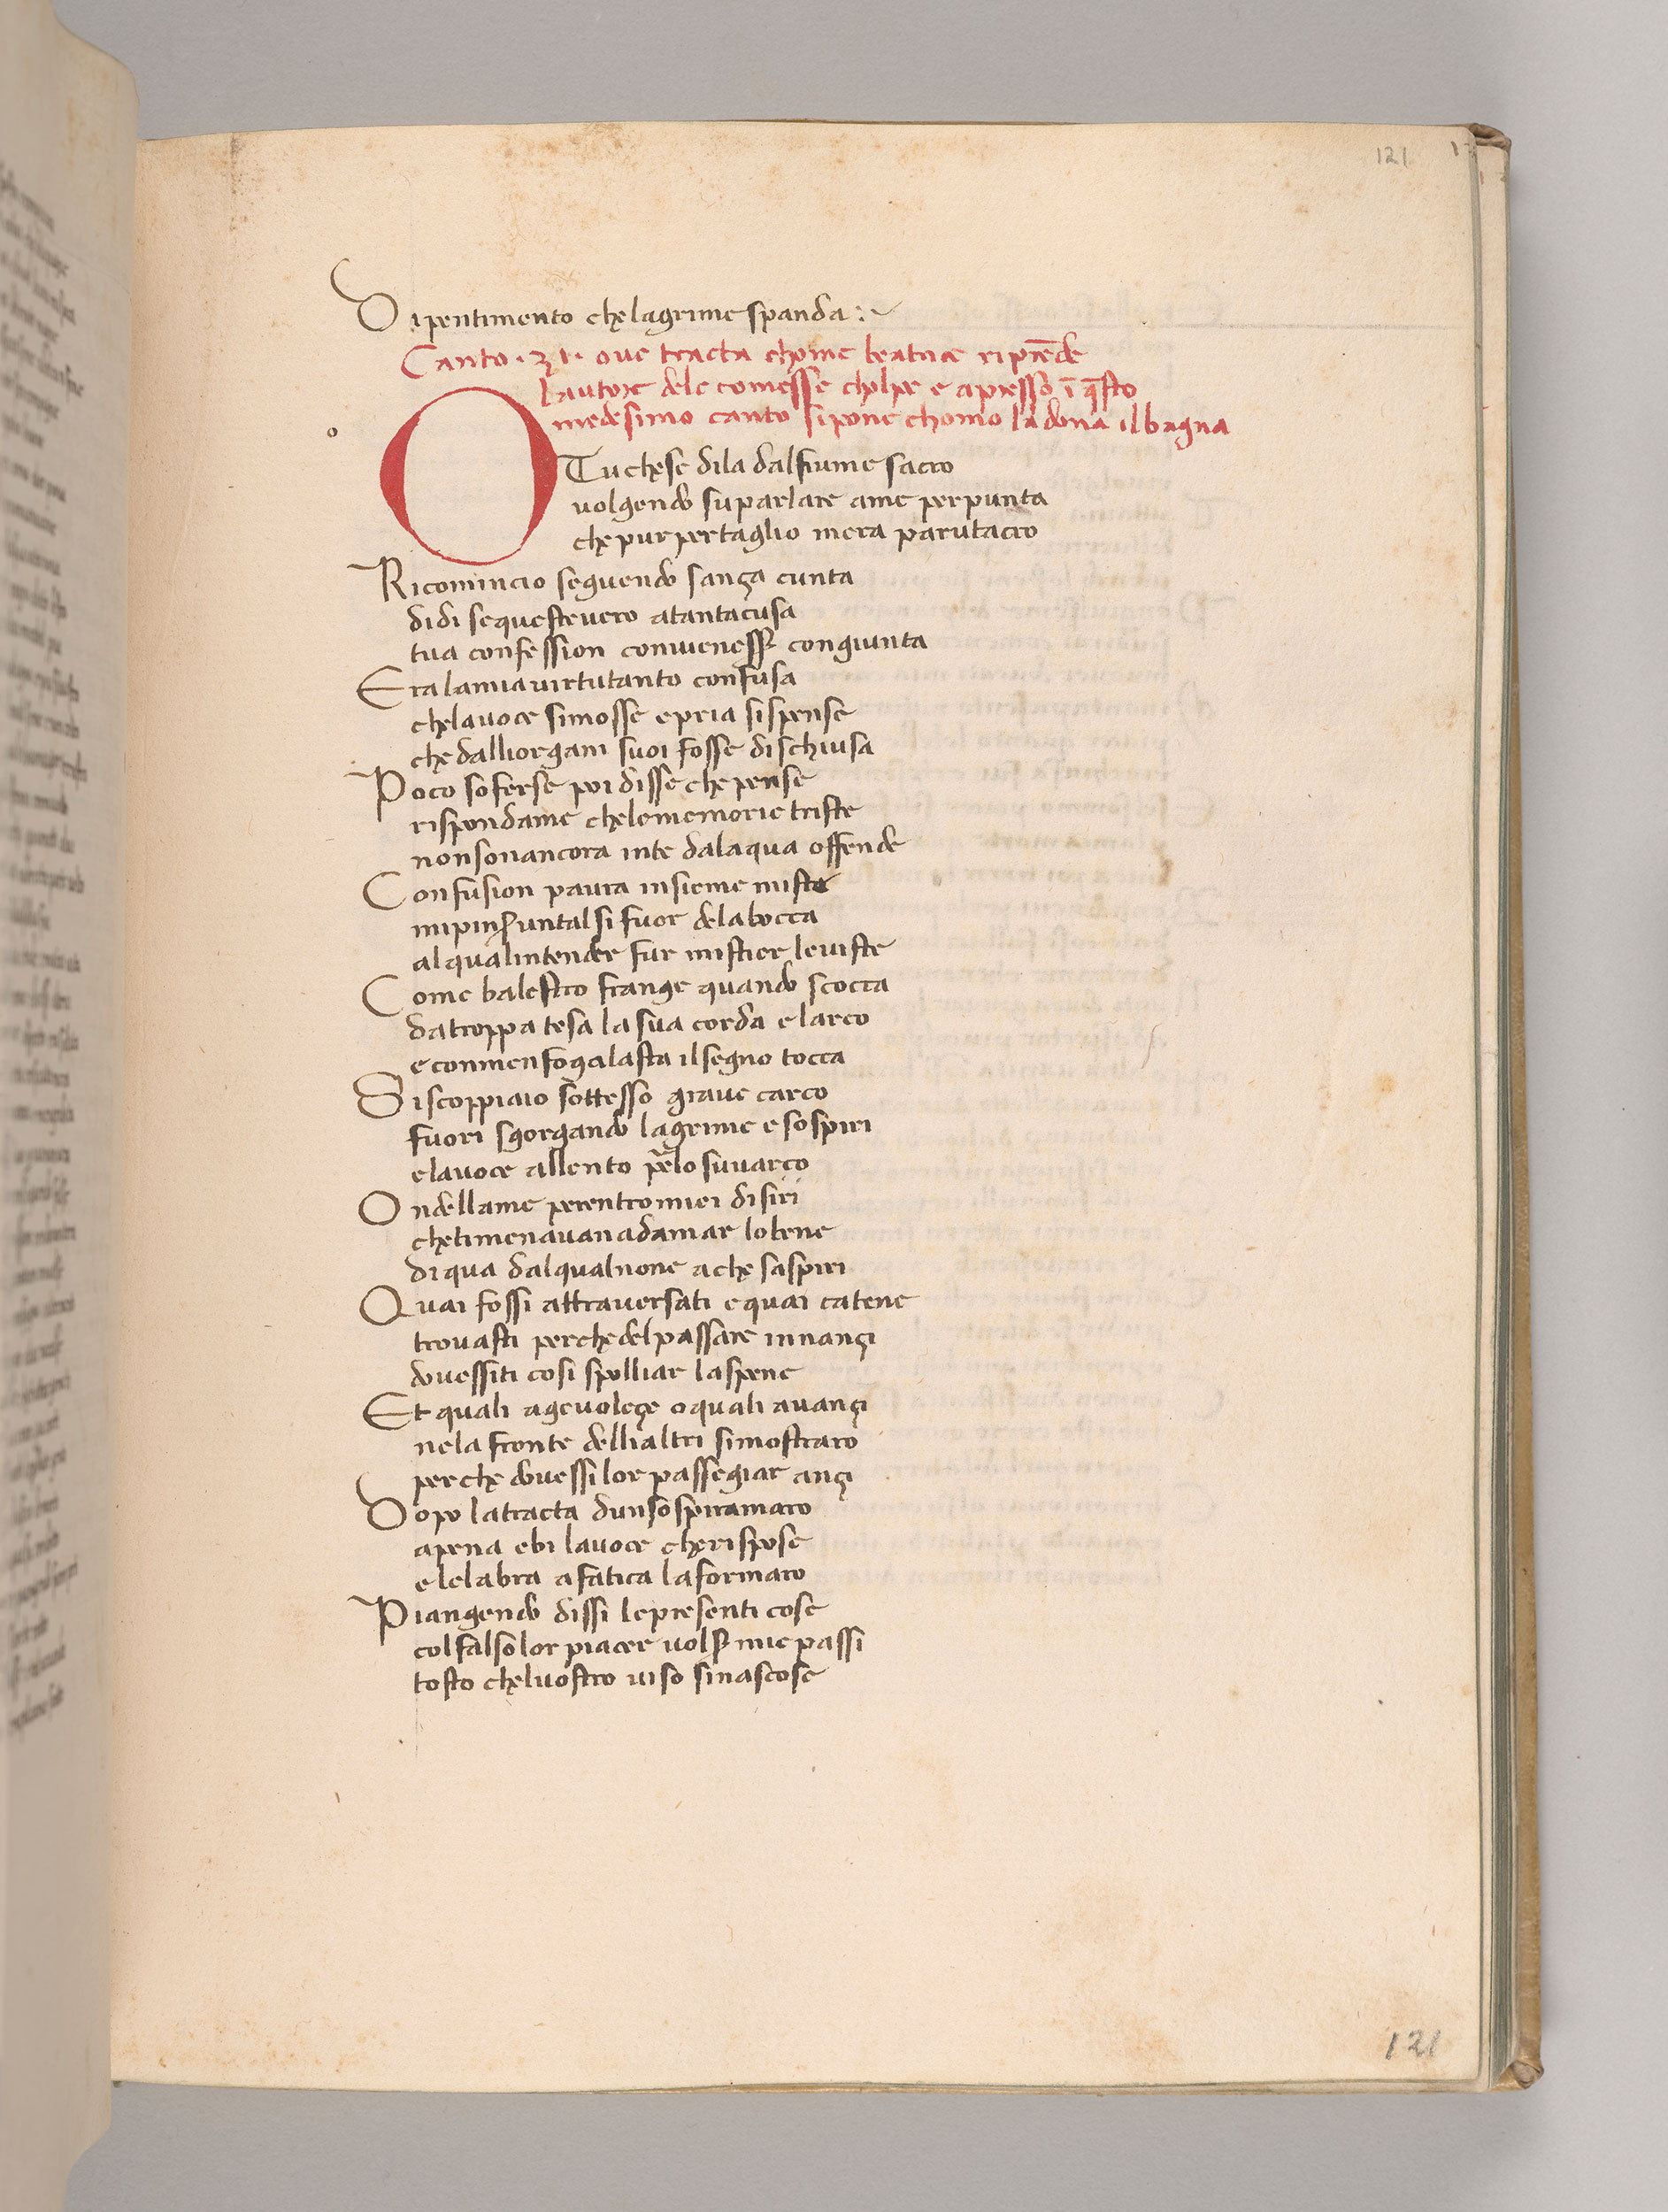 121
Di pentimento che lagrime spanda :~
Canto · 31 · ove tracta chome beatrice riprēde
lautore dele comesse cholpe e apresso ī q̄sto
medesimo canto si pone chomo la dona il bagna
O Tu che se dila dal fiume sacro
volgendo su parlare a me per punta
che pur per taglio mera paruta cro
Ricomincio seguendo sança cunta
di di se queste vero a tanta cusa
tua confession convenesser congiunta
Era la mia virtu tanto confusa
che la voce si mosse e pria si spense
che dalli organi suoi fosse dischiusa
Poco soferse poi disse che pense
risponda me che le memorie triste
non son ancora in te dalaqua offende
Confusion paura insieme miste
mi pinser un tal si fuor de la bocca
al qual intender fur mistier le viste
Come balestro frange quando scocca
da troppa tesa la sua corda e larco
e con men foga lasta il segno tocca
Si scoppiaio sottesso grave carco
fuori sgorgando lagrime e sospiri
e la voce allento per lo su varco
Ondella me per entro miei disirij
che ti menavan ad amar lo bene
di qua dal qual none a che saspiri
Quai fossi attraversati e quai catene
trovasti perche del passare innançi
dovessiti cosi spolliar la spene
Et quali agevoleçe o quali avançi
ne la fronte delli altri si mostraro
perche dovessi lor passegiar ançi
Dopo la tracta dun sospir amaro
apena ebi la voce che rispose
e le labra a fatica la formaro
Piangendo dissi le presenti cose
col falso lor piacer volser mie passi
tosto chel vostro viso si nascose
121